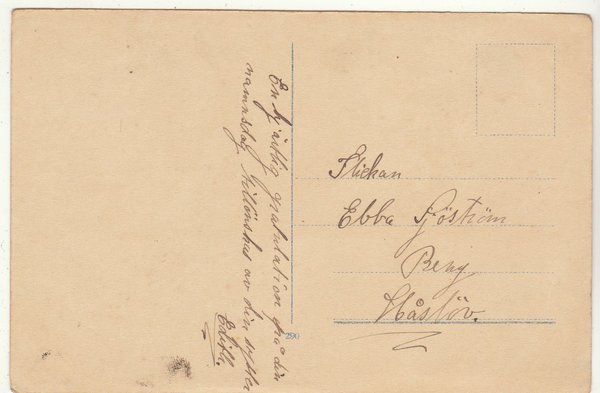 En hjärtlig gratulation på din
namnsdag tillönskas av din syster
Edith.
290
Flickan
Ebba Sjöström
Reng
Håslöv.